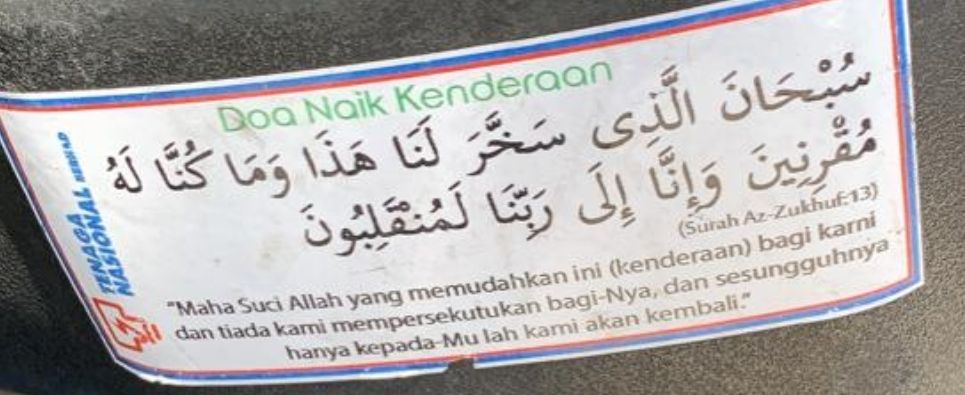 Doa Naik Kenderaan
سُبْحَانَ الَّذِى سَخَّرَ لَنَا هَذَا وَمَا كُنَّا لَهُ
مُقْرِنِينَ وَإِنَّا إِلَى رَبِّنَا لَمُنْقَلِبُونَ
(Surah Az-Zukhuf:13)
"Maha Suci Allah yang memudahkan ini (kenderaan) bagi kami
dan tiada kami mempersekutukan bagi-Nya, dan sesungguhnya
hanya kepada-Mu lah kami akan kembali."
TENAGA
NASIONAL BERHAD